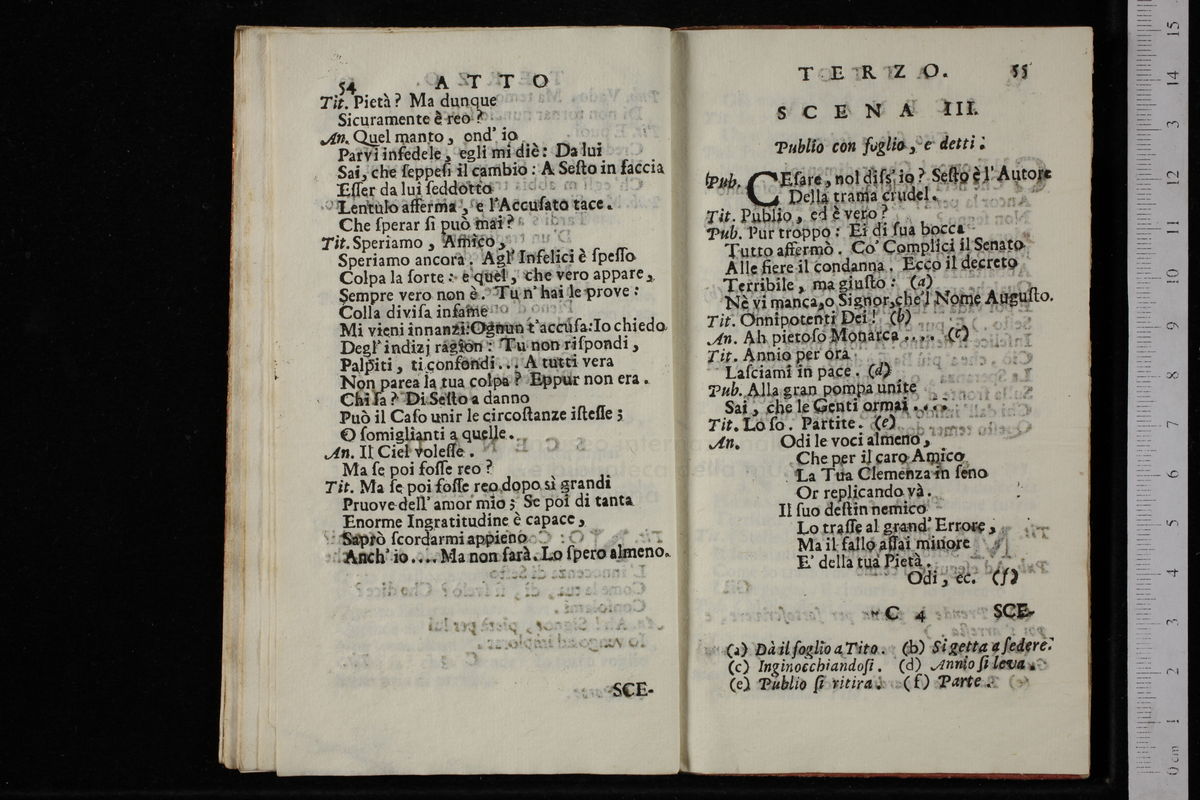 54 ATTO
Tit. Pietà? Ma dunque
Sicuramente è reo?
An. Quel manto, ond' io
Parvi infedele, egli mi diè: Da lui
Sai, che seppesi il cambio: A Sesto in faccia
Esser da lui seddotto
Lentulo afferma, e l'Accusato tace.
Che sperar si può mai?
Tit. Speriamo, Amico,
Speriamo ancora. Agl' Infelici è spesso
Colpa la sorte: e quel, che vero appare,
Sempre vero non è. Tu n' hai le prove:
Colla divisa infame
Mi vieni innanzi: Ognun t'accusa: Io chiedo
Degl' indizj ragion: Tu non rispondi,
Palpiti, ti confondi... A tutti vera
Non parea la tua colpa? Eppur non era.
Chi sa? Di Sesto a danno
Può il Caso unir le circostanze istesse;
O somiglianti a quelle.
An. Il Ciel volesse.
Ma se poi fosse reo?
Tit. Ma se poi fosse reo dopo sì grandi
Pruove dell' amor mio; Se poi di tanta
Enorme Ingratitudine è capace,
Saprò scordarmi appieno
Anch' io.... Ma non sarà. Lo spero almeno.
SCE-
TERZO. 55
SCENA III.
Publio con foglio, e detti.
Pub. CEsare, nol diss' io? Sesto è l' Autore
Della trama crudel.
Tit. Publio, ed è vero?
Pub. Pur troppo: Ei di sua bocca
Tutto affermò. Co' Complici il Senato
Alle fiere il condanna. Ecco il decreto
Terribile, ma giusto: (a)
Nè vi manca, o Signor, che'l Nome Augusto.
Tit. Onnipotenti Dei! (b)
An. Ah pietoso Monarca .... (c)
Tit. Annio per ora
Lasciami in pace. (d)
Pub. Alla gran pompa unite
Sai, che le Genti ormai ....
Tit. Lo so. Partite. (e)
An. Odi le voci almeno,
Che per il caro Amico
La Tua Clemenza in seno
Or replicando và.
Il suo destin nemico
Lo trasse al grand' Errore,
Ma il fallo assai minore
E' della tua Pietà.
Odi, ec. (f)
C 4 SCE-
(a) Dà il foglio a Tito. (b) Si getta a sedere.
(c) Inginocchiandosi. (d) Annio si leva.
(e) Publio si ritira. (f) Parte.